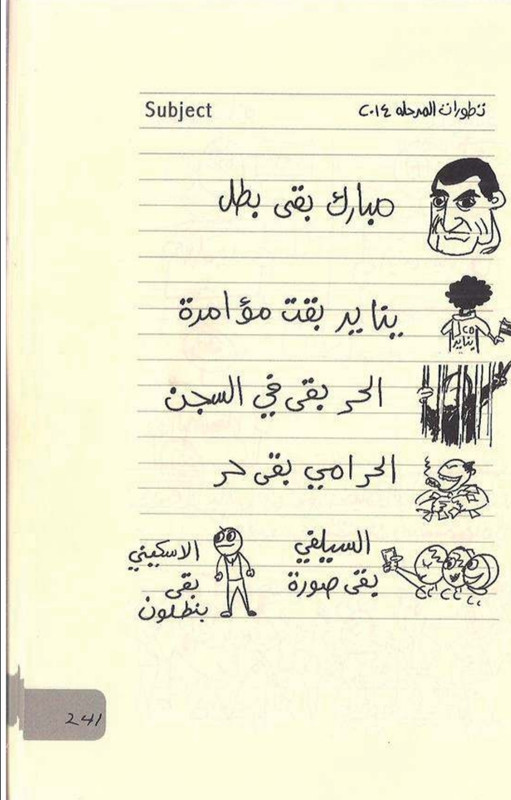 Subject
تطورات المرحله ٢٠١٤
مبارك بقى بطل
يناير بقت مؤامرة
٢٥
يناير
الحر بقى في السجن
الحرامي بقى حر
السيلفي
بقى صورة
الاسكيني
بقى
بنطلون
241